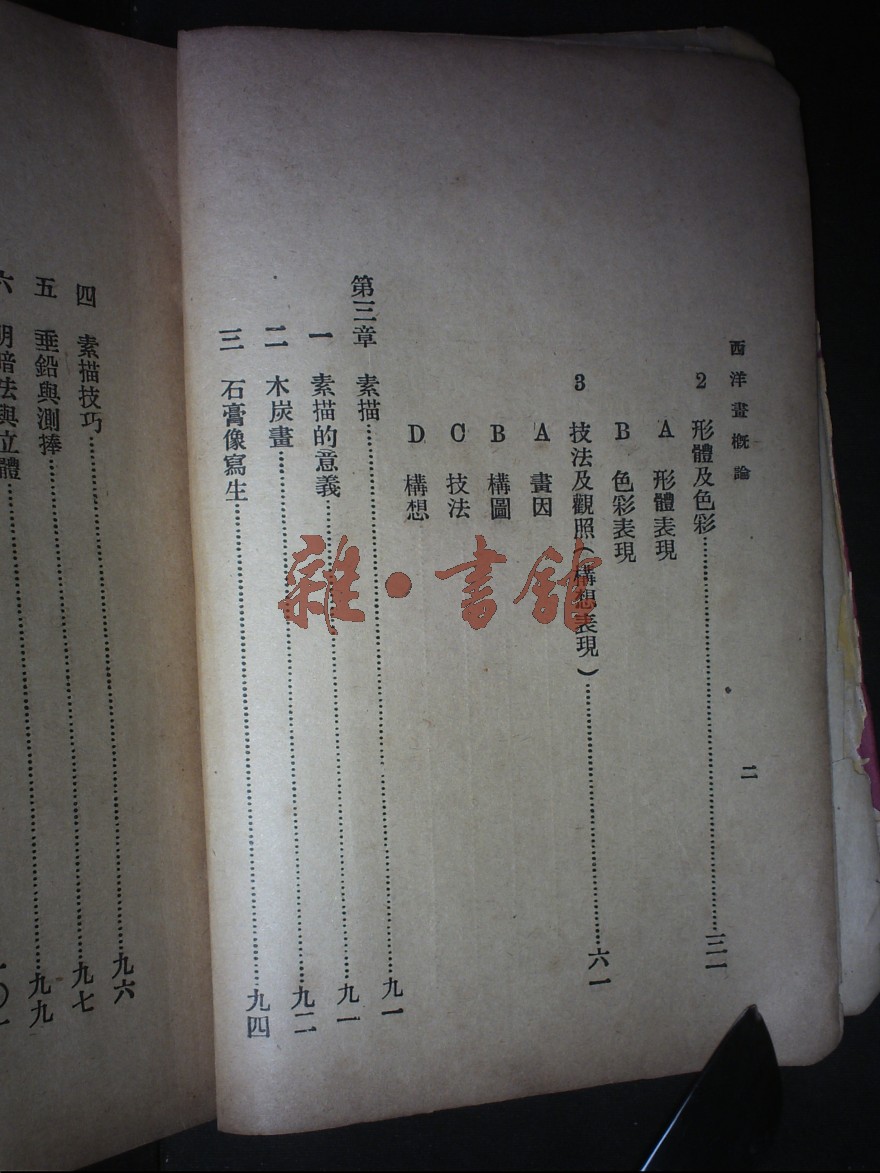 西洋畫概論
二
2 形體及色彩……三一
A 形體表現
B 色彩表現
3 技法及觀照(構想表現)……六一
A 畫因
B 構圖
C 技法
D 構想
第三章 素描……九一
一 素描的意義……九一
二 木炭畫……九二
三 石膏像寫生……九四
四 素描技巧……九六
五 垂鉛與測捧……九七
六 明暗法與立體……九九
一〇一
雜·書館